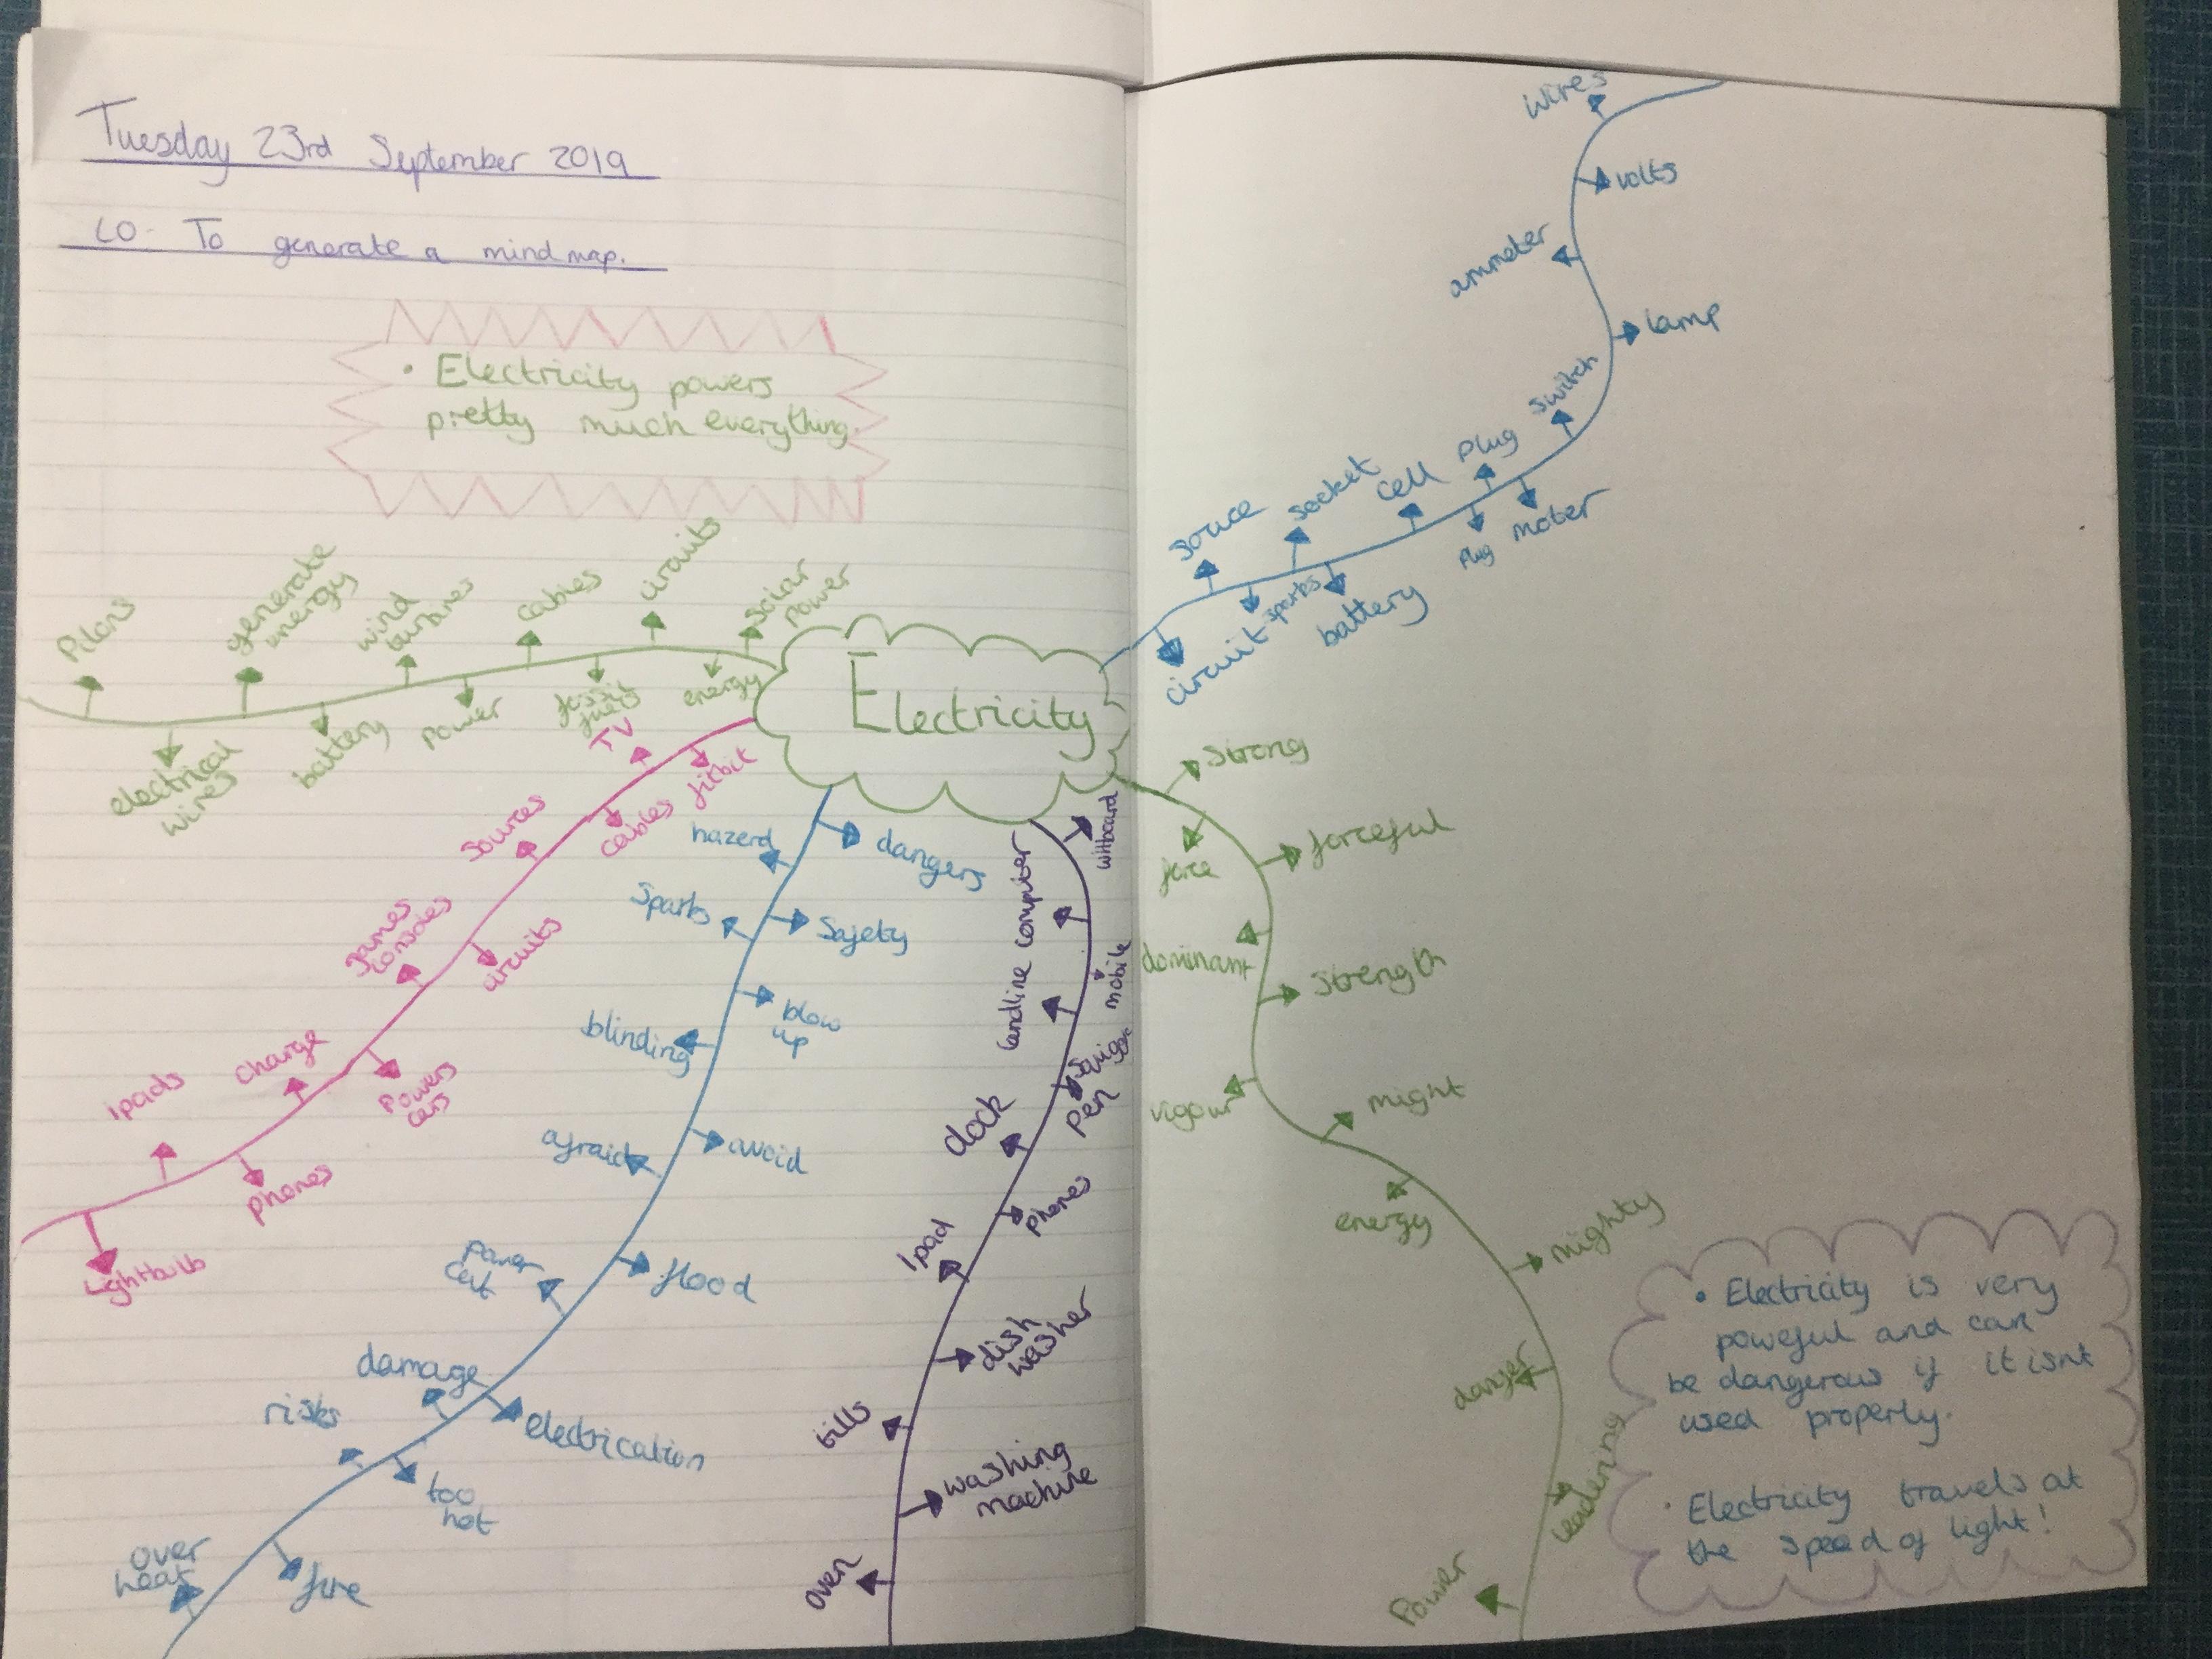 Tuesday 23rd September 2019
LO- To generate a mind map.
• Electricity powers
pretty much everything.
Pilons
generate
energy
wind
turbines
cables
circuits
Solar
Power
electrical
wires
battery
Power
fossil
fuels
energy
Electricity
TV
fitbit
Sources
cables
games
consoles
circuits
charge
Powers
cars
Ipads
Phones
Lightbulb
hazerd
dangers
Sparks
Safety
blinding
blow
up
afraid
avoid
power
cut
flood
damage
electrication
risks
too
hot
over
heat
fire
witboard
computer
mobile
landline
Pen
clock
phones
Ipad
dish
washer
bills
washing
machine
oven
wires
volts
ammeter
lamp
switch
plug
moter
cell
plug
socket
battery
sparks
source
circuit
strong
force
forceful
dominant
strength
vigour
might
energy
mighty
danger
leadening
Power
• Electricity is very
poweful and can
be dangerous if it isnt
used properly.
• Electricity travels at
the speed of light!